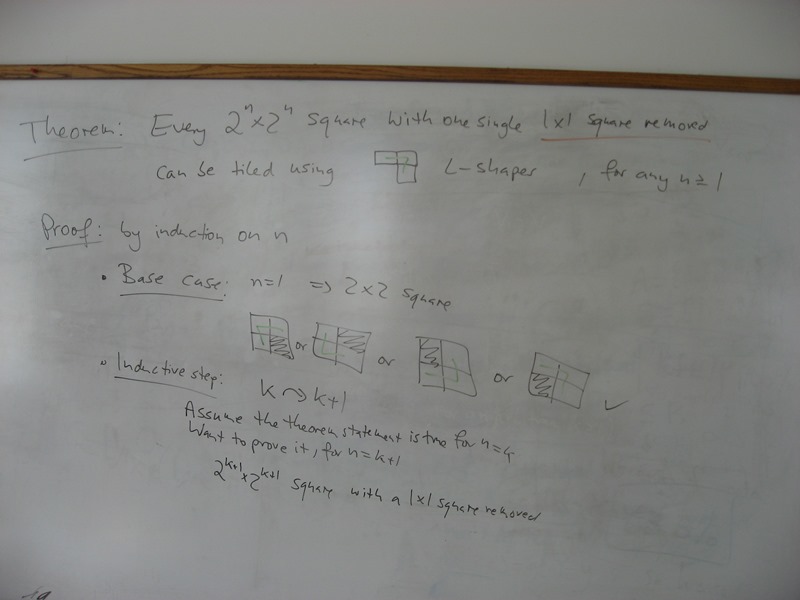 Theorem: Every 2^n x 2^n square with one single 1x1 square removed
can be tiled using L-shapes, for any n ≥ 1
Proof: by induction on n
• Base case: n=1 => 2x2 square
or or or ✓
• Inductive step:
k ↷ k+1
Assume the theorem statement is true for n=k
Want to prove it, for n=k+1
2^k+1 x 2^k+1 square with a 1x1 square removed